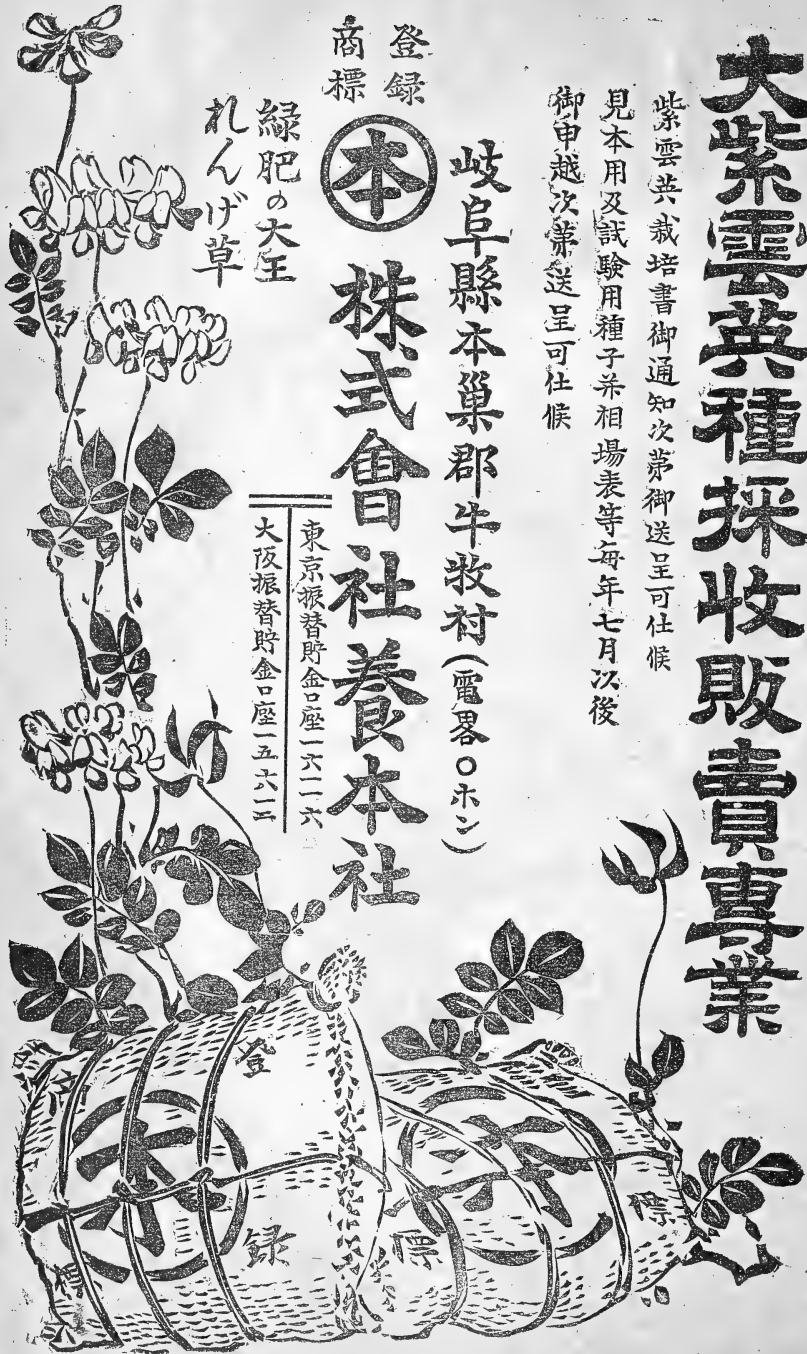 大紫雲英種採收販賣専業
紫雲英栽培書御通知次第御送呈可仕候
見本用及試験用種子并相場表等毎年七月以後
御申越次第送呈可仕候
岐阜縣本巣郡牛牧村(電畧〇ホン)
登録
商標
本
株式會社養本社
東京振替貯金口座一六一一六
大阪振替貯金口座一五六一二
緑肥の大王
れんげ草
登
録
本
標
標